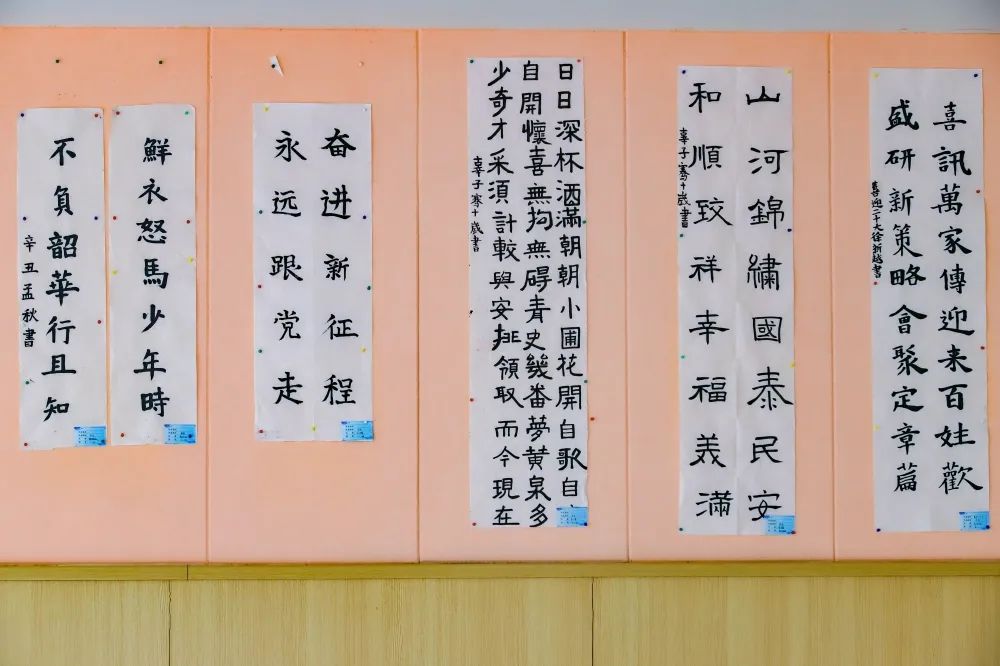 喜訊萬家傳迎来百姓歡
盛研新策略會聚定章篇
喜迎二十大徐新越書
山河錦繡國泰民安
和順致祥幸福美滿
辜子骞十歲書
日日深杯酒滿朝朝小圃花開自歌自
自開懷喜無拘無碍青史幾番夢黄泉多
少奇才采須計較與安排領取而今現在
辜子骞十歲書
奋进新征程
永远跟党走
鮮衣怒馬少年時
不負韶華行且知
辛丑孟秋書